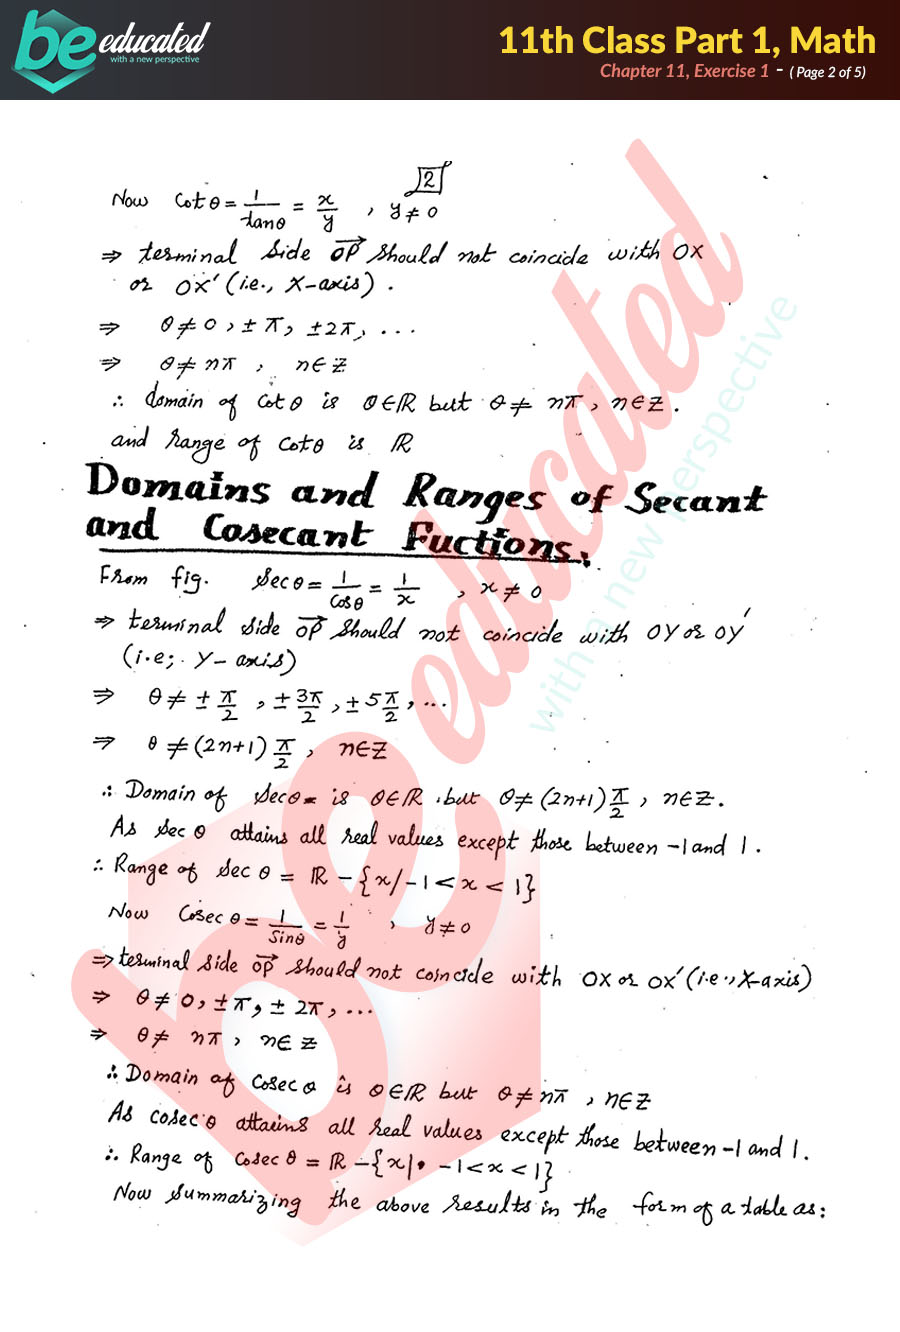 be educated
with a new perspective
11th Class Part 1, Math
Chapter 11, Exercise 1 - ( Page 2 of 5)
2
Now Cot θ = 1/tanθ = x/y , y ≠ 0
⇒ terminal side OP→ should not coincide with OX
or OX′ (i.e., X-axis) .
⇒ θ ≠ 0 , ± π, ±2π, ...
⇒ θ ≠ nπ , n∈Z
∴ domain of Cot θ is θ∈ℝ but θ ≠ nπ , n∈Z .
and range of Cotθ is ℝ
Domains and Ranges of Secant
and Cosecant Fuctions.
From fig. Secθ = 1/Cosθ = 1/x , x ≠ 0
⇒ terminal side OP→ should not coincide with OY or OY′
(i.e; Y-axis)
⇒ θ ≠ ± π/2 , ± 3π/2 , ± 5π/2 , ...
⇒ θ ≠ (2n+1) π/2 , n∈Z
∴ Domain of Secθ = is θ∈ℝ but θ ≠ (2n+1) π/2 , n∈Z .
As Sec θ attains all real values except those between -1 and 1 .
∴ Range of Sec θ = ℝ - {x/-1 < x < 1}
Now Cosec θ = 1/Sinθ = 1/y , y ≠ 0
⇒ terminal side OP→ should not coincide with OX or OX′ (i.e., X-axis)
⇒ θ ≠ 0, ± π, ± 2π, ...
⇒ θ ≠ nπ , n∈Z
∴ Domain of Cosec θ is θ∈ℝ but θ ≠ nπ , n∈Z
As cosec θ attains all real values except those between -1 and 1.
∴ Range of Cosec θ = ℝ - {x| -1 < x < 1}
Now summarizing the above results in the form of a table as:
be educated
with a new perspective